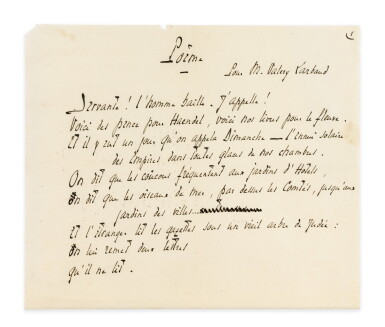 1
Poème
Pour M. Valery Larbaud
Servante ! l'homme baille. J'appelle !
Voici des pence pour Haendel, voici nos livres pour le fleuve.
Et il y eut un jour qu'on appela Dimanche — l'ennui solaire
des Empires dans toutes glaces de nos chambres.
On dit que les coucous fréquentent aux jardins d'Hôtels,
on dit que les oiseaux de mer, par dessus les Comtés, jusqu'aux
jardins des villes...
Et l'étranger lit les gazettes sous un vieil arbre de Judée :
On lui remet deux lettres
qu'il ne lit.